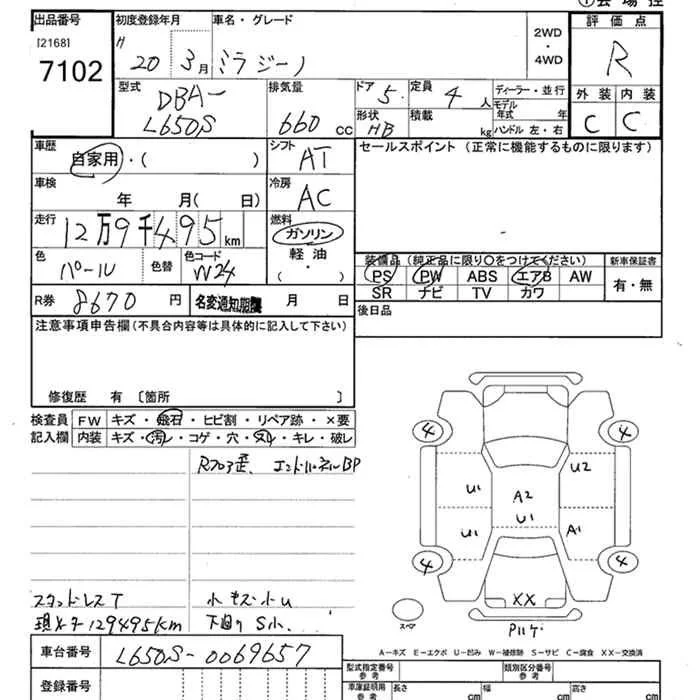 ①会場控
出品番号
[2168]
7102
初度登録年月
H 20 3月
車名・グレード
ミラジーノ
2WD
・
4WD
評価点
R
型式
DBA-
L650S
排気量
660 cc
ドア 5
定員 4 人
ディーラー・並行
形状 HB
積載 kg
モデル年式 年
ハンドル 左・右
外装 内装
C C
車歴
自家用・( )
シフト
AT
セールスポイント(正常に機能するものに限ります)
車検
年 月( 日)
冷房
AC
走行
12万9千495km
燃料
ガソリン
軽油
( ・ )
色
パール
色替
色コード
W24
装備品(純正品に限り○をつけてください)
新車保証書
PS PW ABS エアB AW
SR ナビ TV カワ
有・無
R券 8670 円
名変通知期限 月 日
後日品
注意事項申告欄(不具合内容等は具体的に記入して下さい)
修復歴 有 [箇所 ]
検査員 FW キズ・飛石・ヒビ割・リペア跡・×要
記入欄 内装 キズ・汚レ・コゲ・穴・スレ・キレ・破レ
Rフロア歪、エンドパネルBP
4 4
U1 U2
A2
U1
U1 A1
4 4
XX
スペア
Pハゲ
スタッドレスT
現メーター129495km
小キズ・小U
下回りS小
A-キズ E-エクボ U-凹み W-補修跡 S-サビ C-腐食 XX-交換済
車台番号
L650S-0069657
登録番号
型式指定番号
参考
類別区分番号
参考
車庫証明用
参考
長さ cm
幅 cm
高さ cm